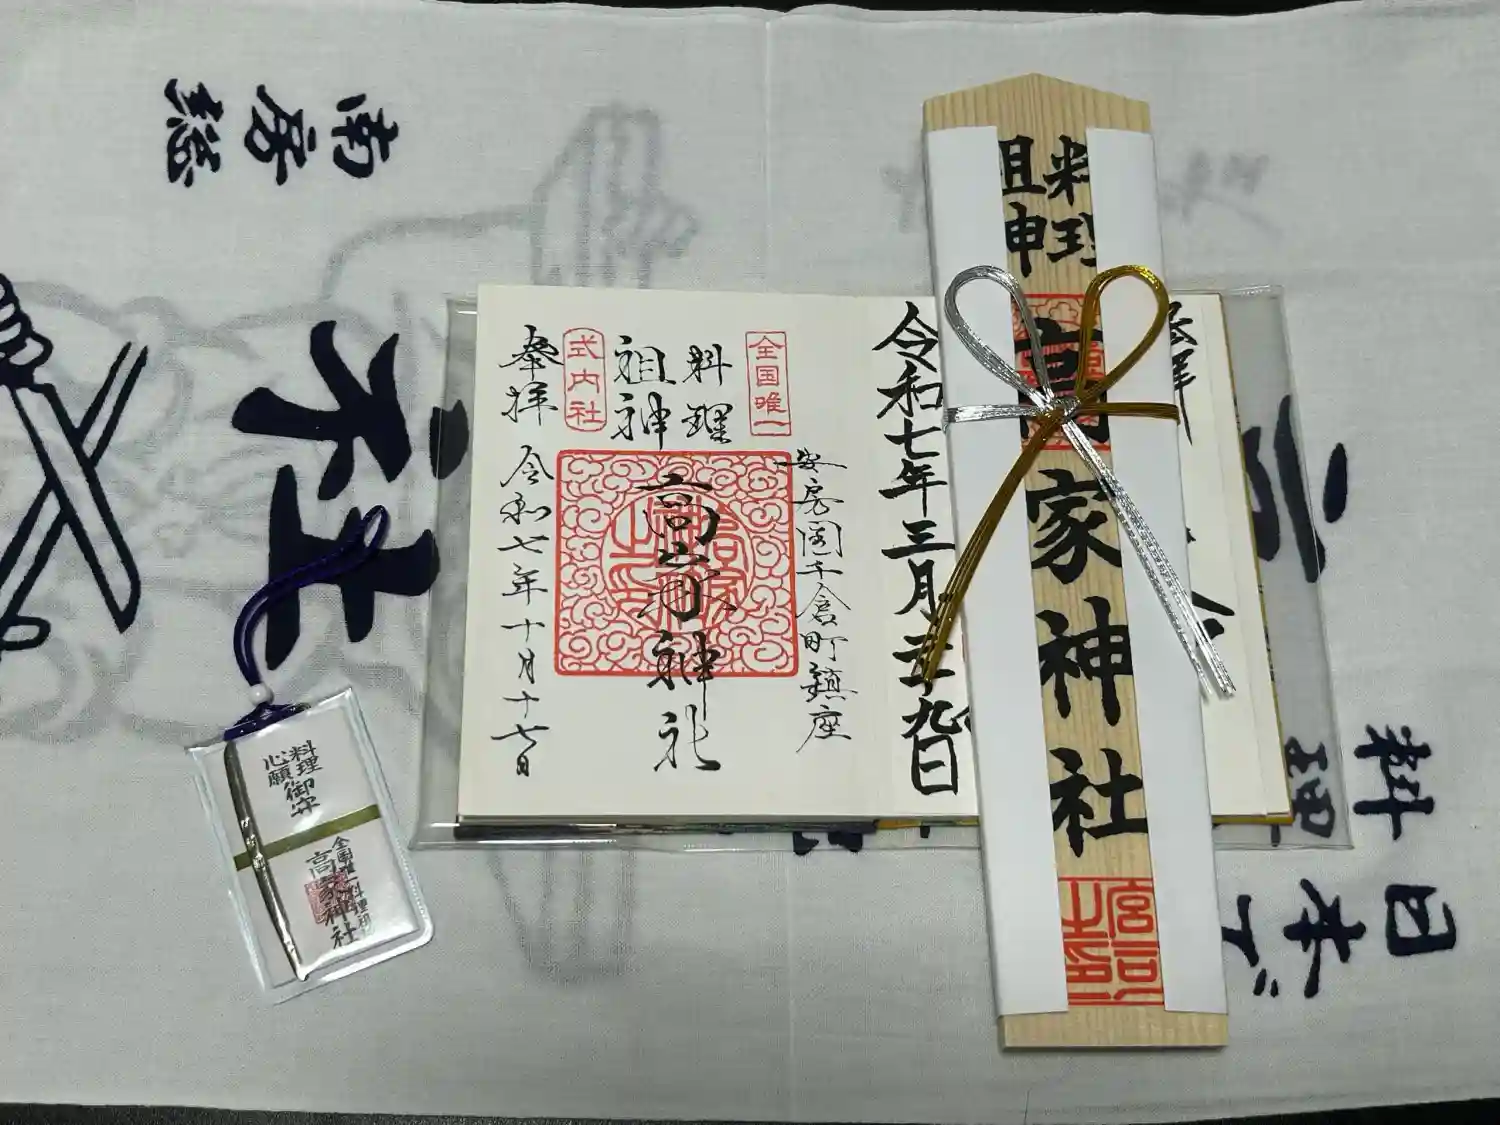 南房総
社
日本
料理
全国唯一
料理
祖神
式内社
安房国千倉町鎮座
高家神社
奉拝
令和七年十月十七日
令和七年三月二十九日
料理
祖神
高家神社
料理御守
心願
全国唯一料理
高家神社